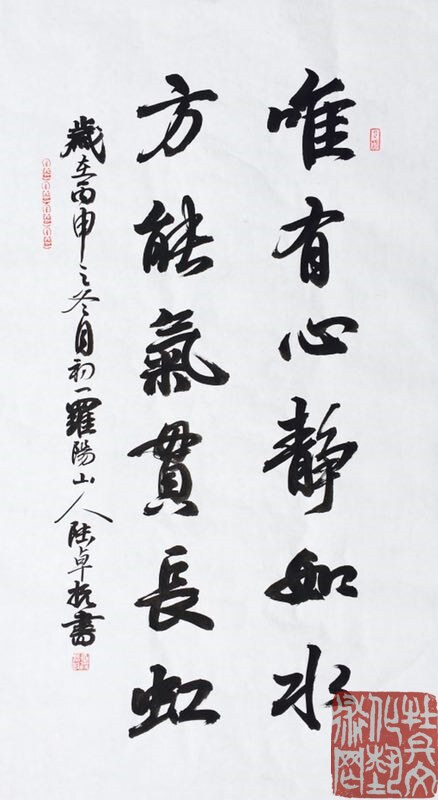 唯有心靜如水
方能氣貫長虹
歲在丙申之冬月初一羅陽山人陸卓書